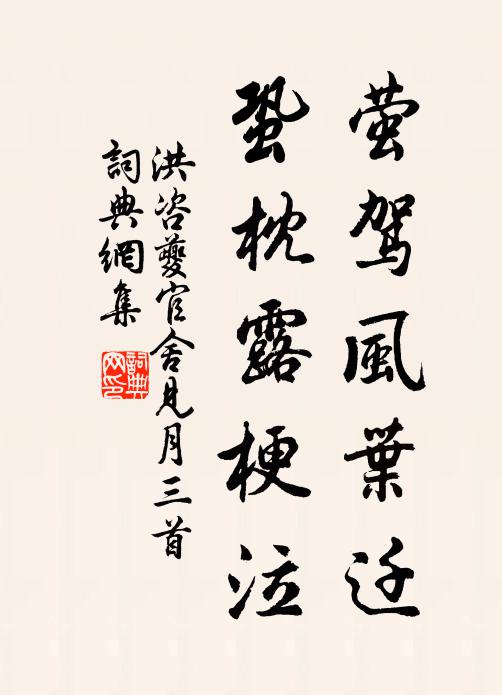 萤驾風葉迁
蛩枕露梗泣
洪咨夔官舍见月三首
詞典網集
詞典网印